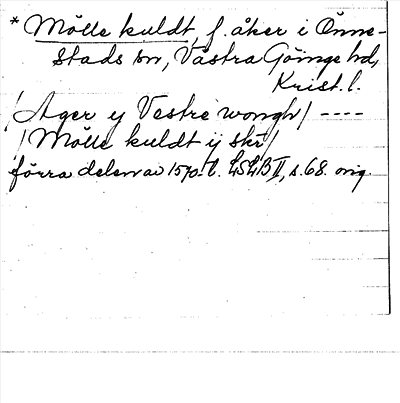 * Mölle kuldt, f. åker i Önne-
stads sn, Västra Göinge hd,
Krist. l.
/Ager y Vestre wongh/ ----
/Mölle kuldt ij skr/
förra delen av 1570-t. LSLB II, s. 68. orig.